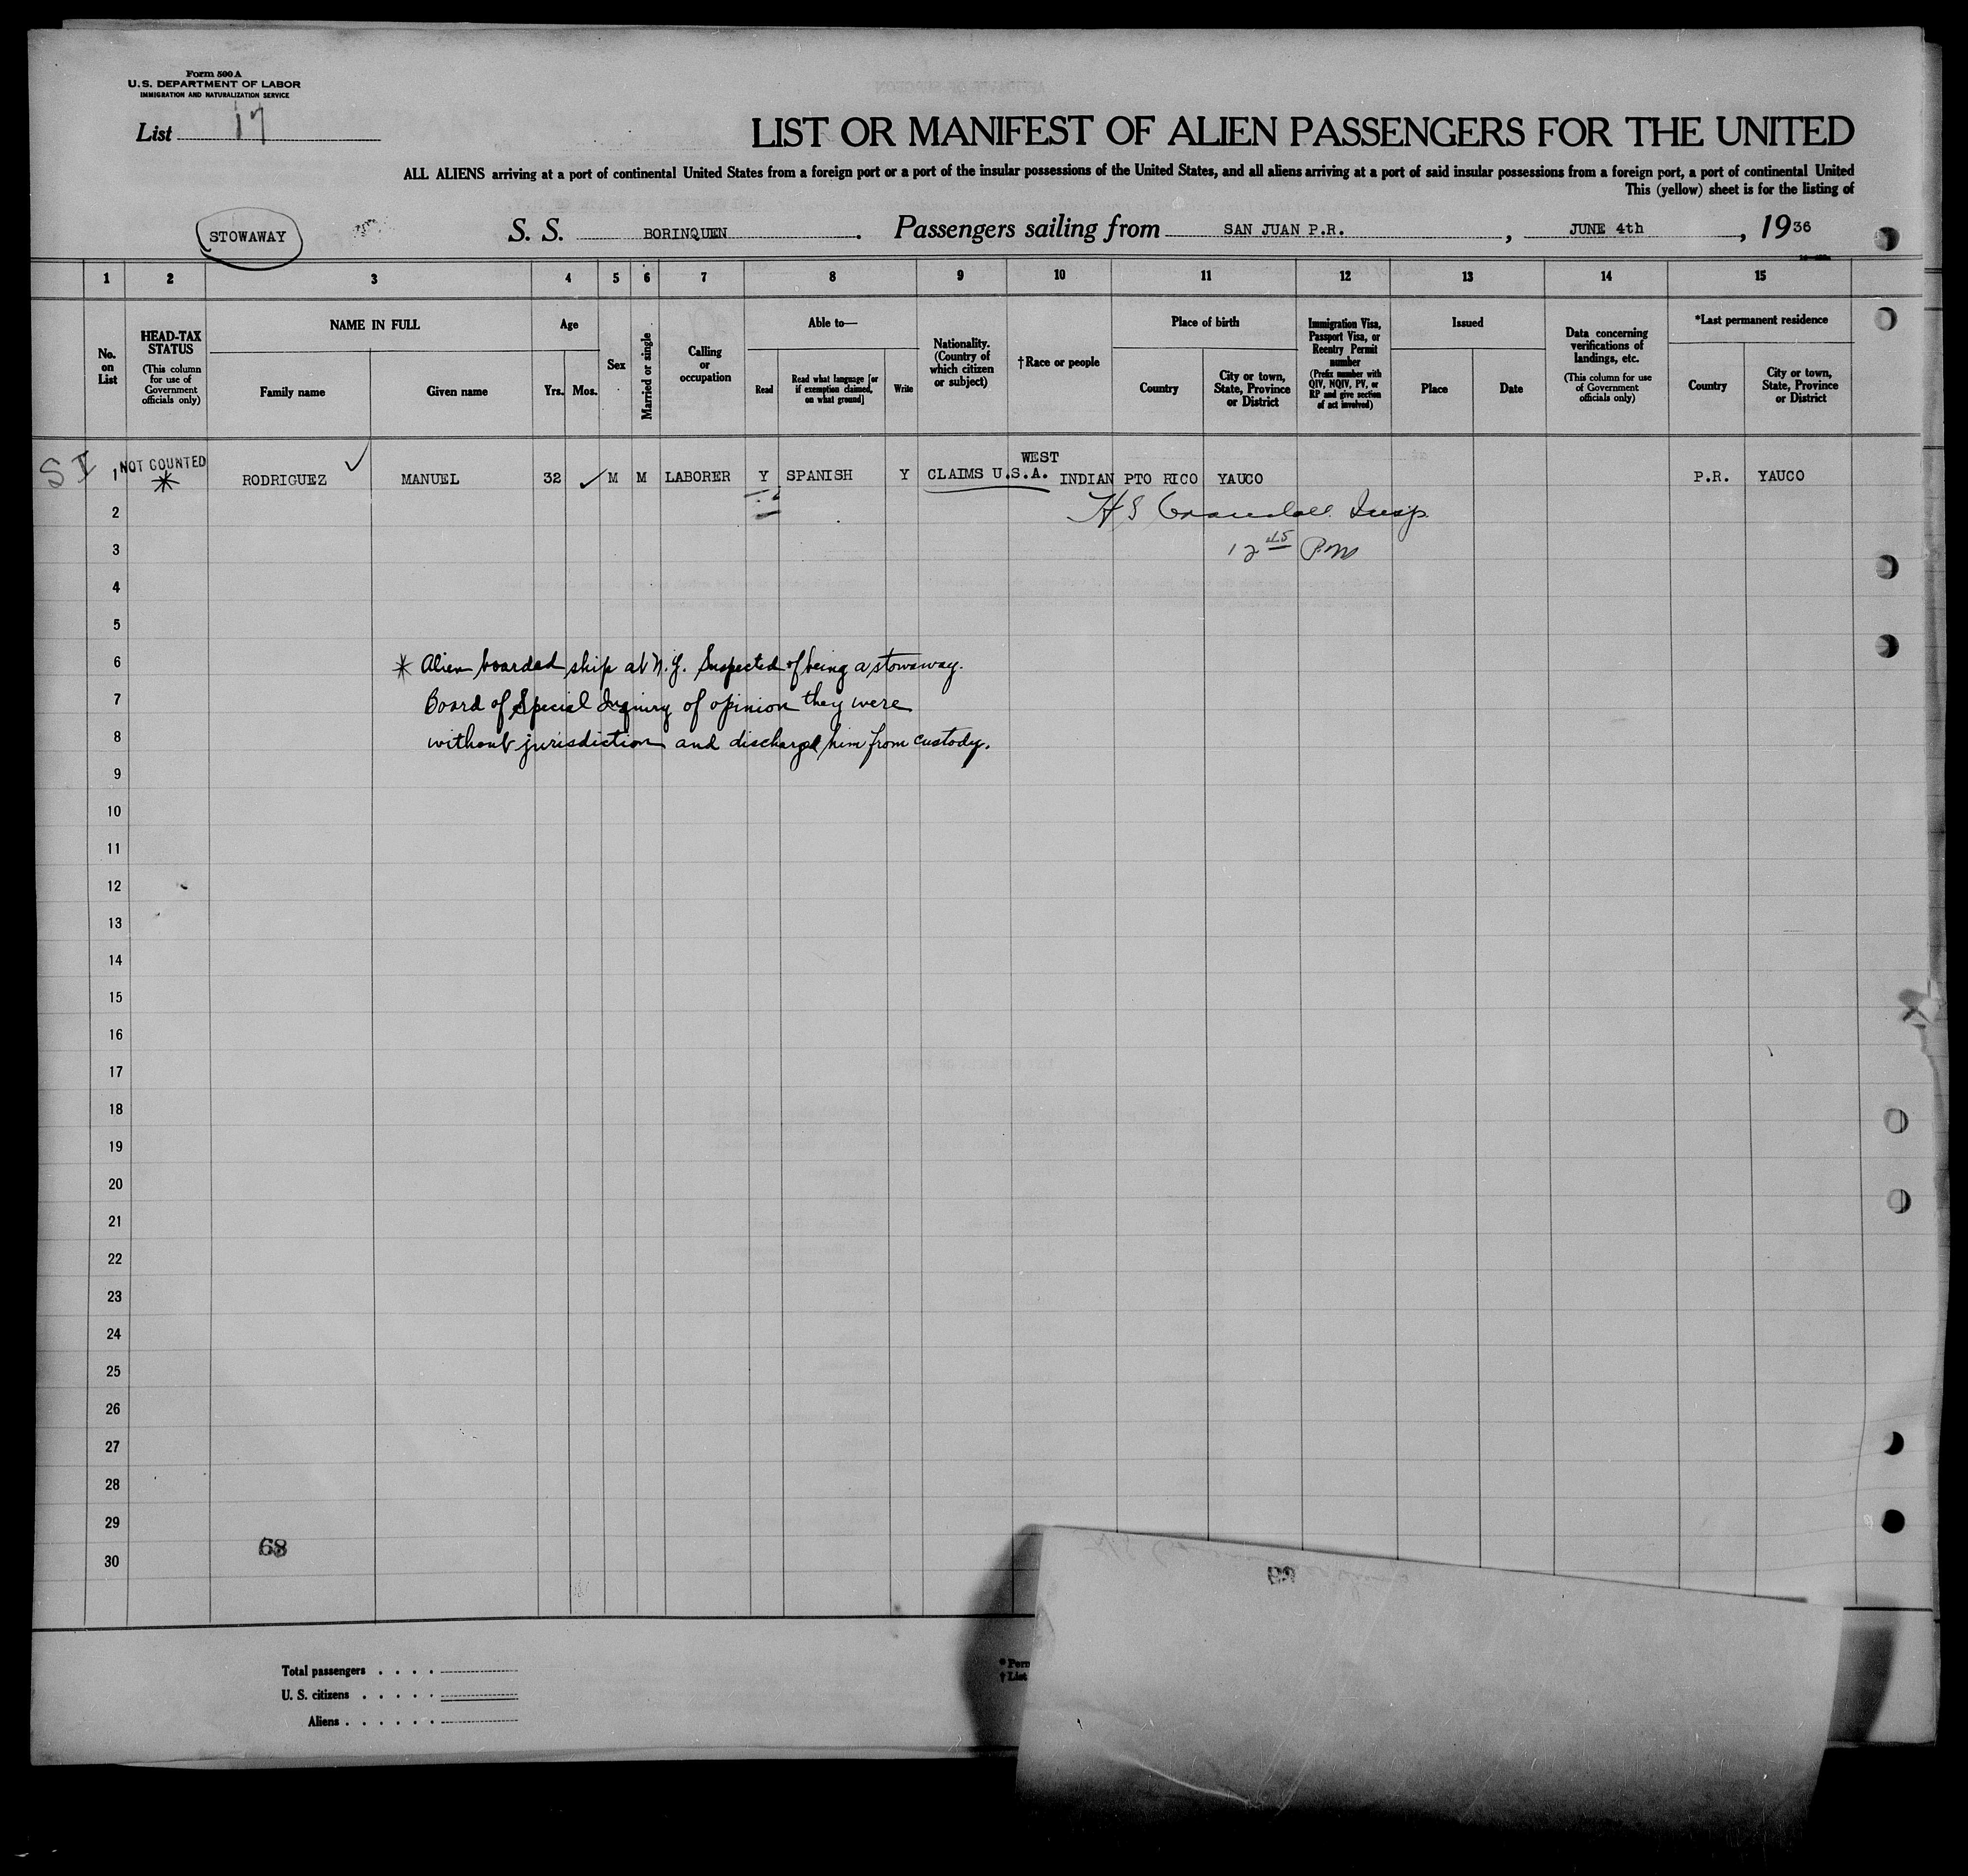 Form 500 A
U. S. DEPARTMENT OF LABOR
IMMIGRATION AND NATURALIZATION SERVICE
List 17
LIST OR MANIFEST OF ALIEN PASSENGERS FOR THE UNITED
ALL ALIENS arriving at a port of continental United States from a foreign port or a port of the insular possessions of the United States, and all aliens arriving at a port of said insular possessions from a foreign port, a port of continental United
This (yellow) sheet is for the listing of
STOWAWAY
S. S. BORINQUEN. Passengers sailing from SAN JUAN P.R., JUNE 4th, 1936
1 2 3 4 5 6 7 8 9 10 11 12 13 14 15
No. on List
HEAD-TAX STATUS (This column for use of Government officials only)
NAME IN FULL
Family name
Given name
Age
Yrs. Mos.
Sex
Married or single
Calling or occupation
Able to—
Read
Read what language [or if exemption claimed, on what ground]
Write
Nationality. (Country of which citizen or subject)
†Race or people
Place of birth
Country
City or town, State, Province or District
Immigration Visa, Passport Visa, or Reentry Permit number (Prefix number with QIV, NQIV, PV, or RP and give section of act involved)
Issued
Place
Date
Data concerning verifications of landings, etc. (This column for use of Government officials only)
*Last permanent residence
Country
City or town, State, Province or District
SI 1 NOT COUNTED * RODRIGUEZ ✓ MANUEL 32 ✓ M M LABORER Y SPANISH Y CLAIMS U.S.A. WEST INDIAN PTO RICO YAUCO P.R. YAUCO
2 H S Crandall Insp
3 12 45 P.M
4
5
6 * Alien boarded ship at N.Y. Suspected of being a stowaway.
7 Board of Special Inquiry of opinion they were
8 without jurisdiction and discharged him from custody.
9
10
11
12
13
14
15
16
17
18
19
20
21
22
23
24
25
26
27
28
29
30
68
Total passengers
U. S. citizens
Aliens
* Perm
† List